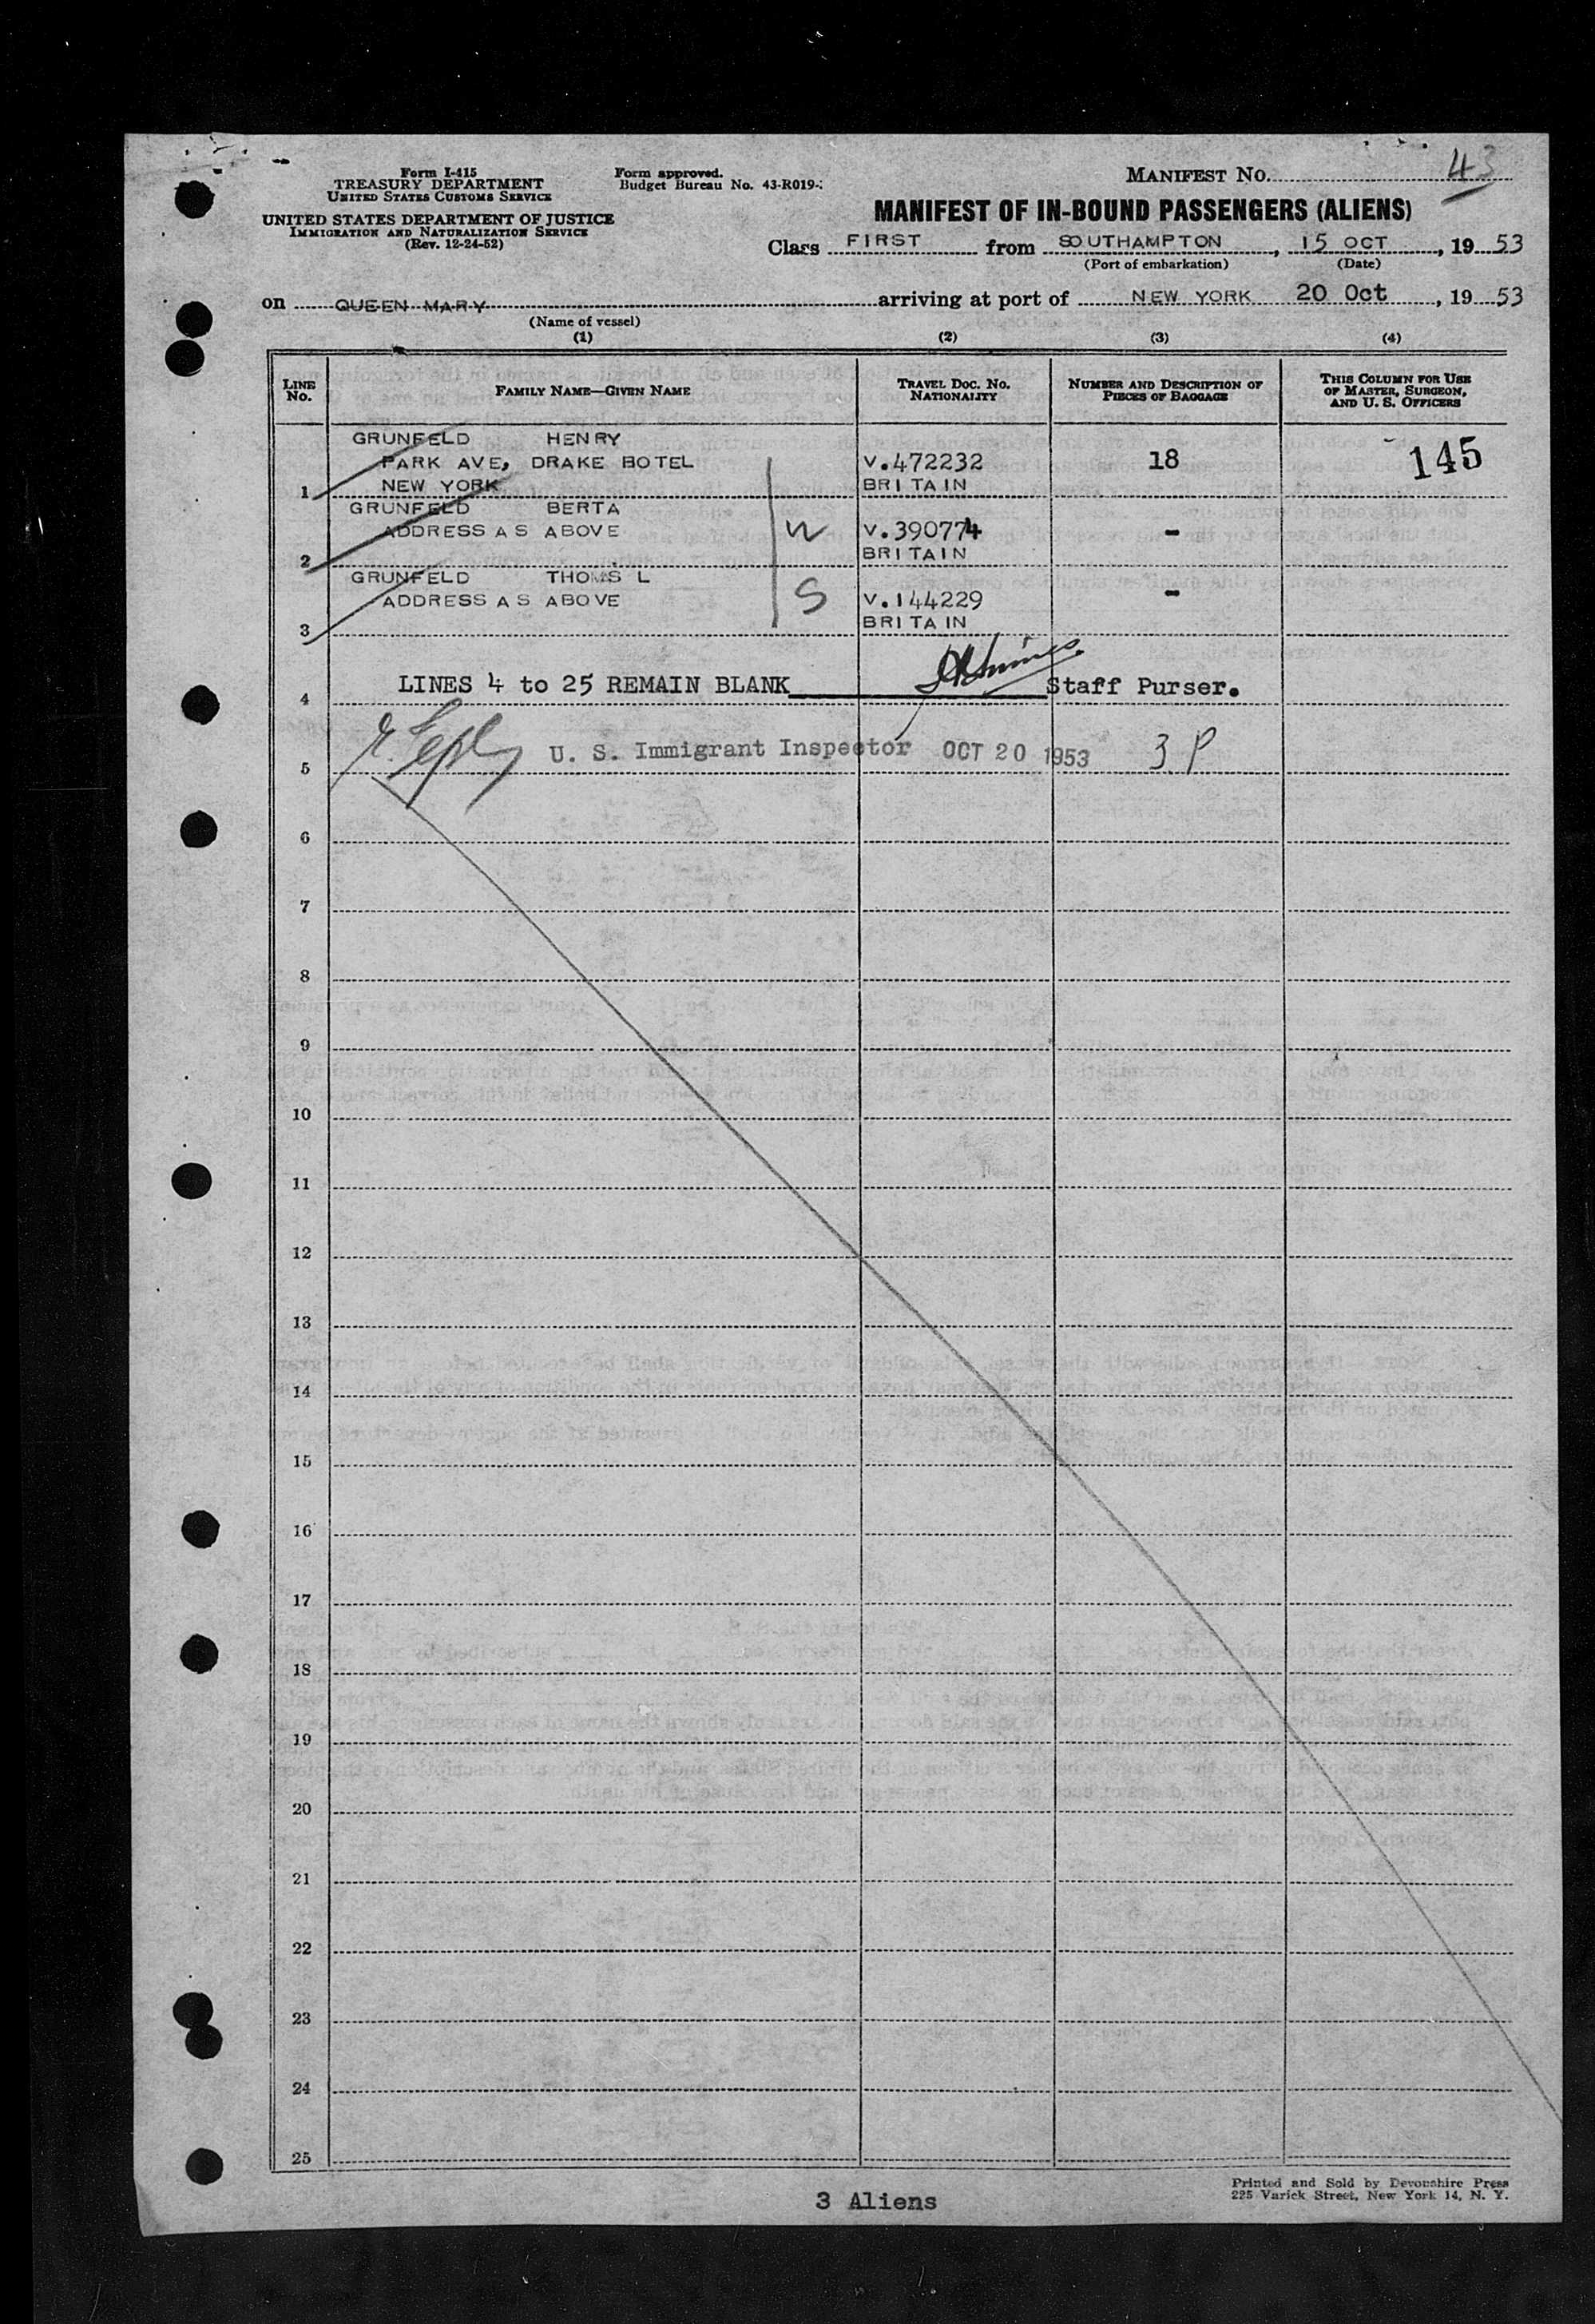 Form I-415
TREASURY DEPARTMENT
UNITED STATES CUSTOMS SERVICE
UNITED STATES DEPARTMENT OF JUSTICE
IMMIGRATION AND NATURALIZATION SERVICE
(Rev. 12-24-52)
Form approved.
Budget Bureau No. 43-R019-
MANIFEST NO. 43
MANIFEST OF IN-BOUND PASSENGERS (ALIENS)
Class FIRST from SOUTHAMPTON, 15 OCT, 19 53
(Port of embarkation) (Date)
on QUEEN MARY arriving at port of NEW YORK 20 Oct, 19 53
(Name of vessel)
(1) (2) (3) (4)
LINE No. FAMILY NAME—GIVEN NAME TRAVEL DOC. NO. NATIONALITY NUMBER AND DESCRIPTION OF PIECES OF BAGGAGE THIS COLUMN FOR USE OF MASTER, SURGEON, AND U. S. OFFICERS
GRUNFELD HENRY
PARK AVE, DRAKE BOTEL V.472232 18 145
1 NEW YORK BRITAIN
GRUNFELD BERTA
ADDRESS AS ABOVE W V.390774 -
2 BRITAIN
GRUNFELD THOMS L
ADDRESS AS ABOVE S V.144229 -
3 BRITAIN
4 LINES 4 to 25 REMAIN BLANK Staff Purser.
5 U. S. Immigrant Inspector OCT 20 1953 3 P
6
7
8
9
10
11
12
13
14
15
16
17
18
19
20
21
22
23
24
25
3 Aliens
Printed and Sold by Devonshire Press
225 Varick Street, New York 14, N. Y.